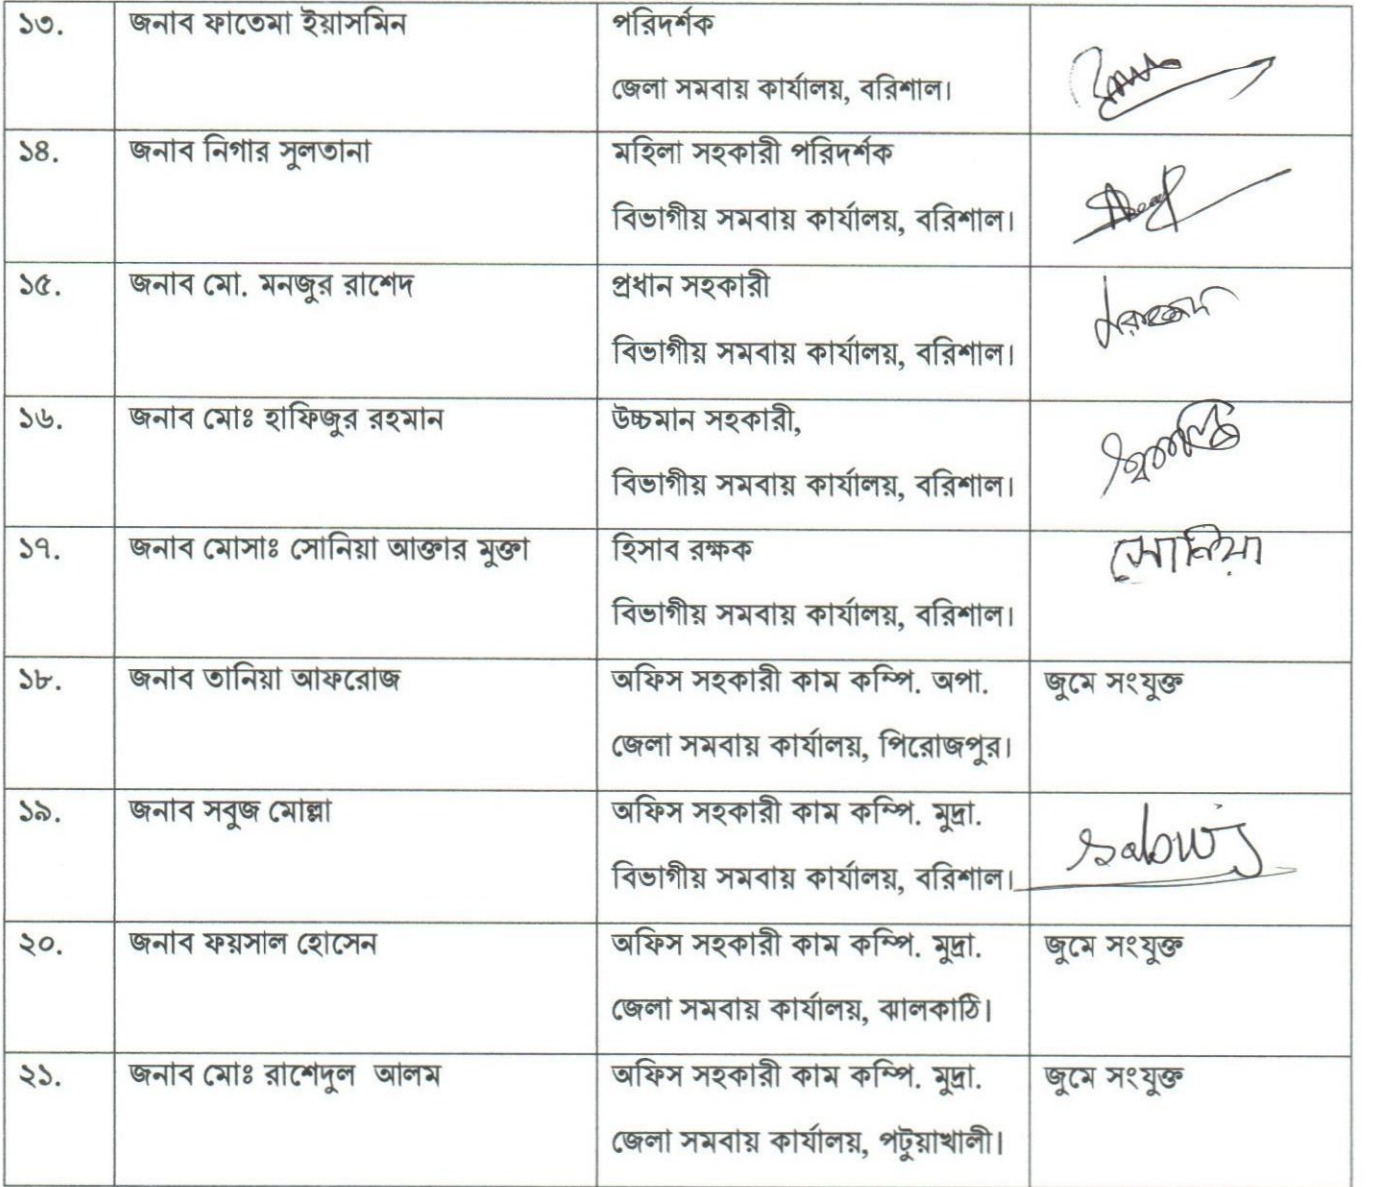 ১৩. জনাব ফাতেমা ইয়াসমিন পরিদর্শক
জেলা সমবায় কার্যালয়, বরিশাল।
১৪. জনাব নিগার সুলতানা মহিলা সহকারী পরিদর্শক
বিভাগীয় সমবায় কার্যালয়, বরিশাল।
১৫. জনাব মো. মনজুর রাশেদ প্রধান সহকারী
বিভাগীয় সমবায় কার্যালয়, বরিশাল।
১৬. জনাব মোঃ হাফিজুর রহমান উচ্চমান সহকারী,
বিভাগীয় সমবায় কার্যালয়, বরিশাল।
১৭. জনাব মোসাঃ সোনিয়া আক্তার মুক্তা হিসাব রক্ষক সোনিয়া
বিভাগীয় সমবায় কার্যালয়, বরিশাল।
১৮. জনাব তানিয়া আফরোজ অফিস সহকারী কাম কম্পি. অপা. জুমে সংযুক্ত
জেলা সমবায় কার্যালয়, পিরোজপুর।
১৯. জনাব সবুজ মোল্লা অফিস সহকারী কাম কম্পি. মুদ্রা. sabuj
বিভাগীয় সমবায় কার্যালয়, বরিশাল।
২০. জনাব ফয়সাল হোসেন অফিস সহকারী কাম কম্পি. মুদ্রা. জুমে সংযুক্ত
জেলা সমবায় কার্যালয়, ঝালকাঠি।
২১. জনাব মোঃ রাশেদুল আলম অফিস সহকারী কাম কম্পি. মুদ্রা. জুমে সংযুক্ত
জেলা সমবায় কার্যালয়, পটুয়াখালী।